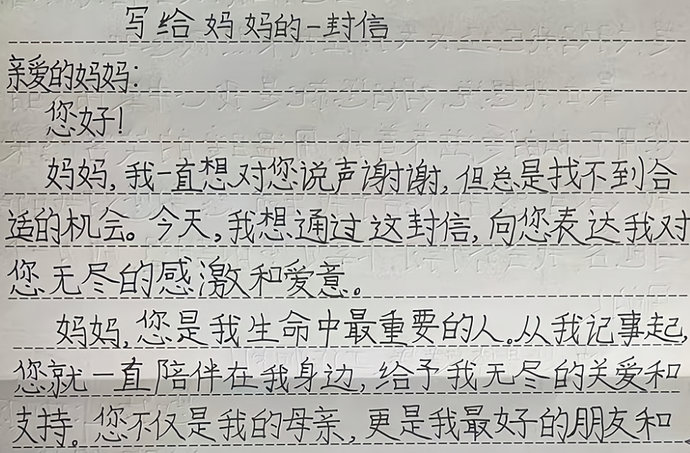 写给妈妈的一封信
亲爱的妈妈:
您好!
妈妈,我一直想对您说声谢谢,但总是找不到合
适的机会。今天,我想通过这封信,向您表达我对
您无尽的感激和爱意。
妈妈,您是我生命中最重要的人。从我记事起,
您就一直陪伴在我身边,给予我无尽的关爱和
支持。您不仅是我的母亲,更是我最好的朋友和